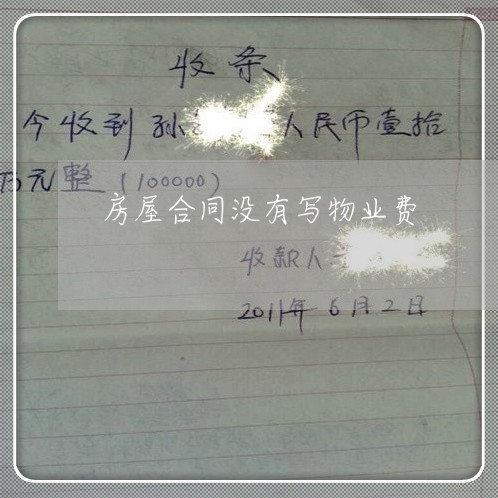 收条
今收到孙 人民币壹拾
万元整(100000)
房屋合同没有写物业费
收款人
2011年6月2日